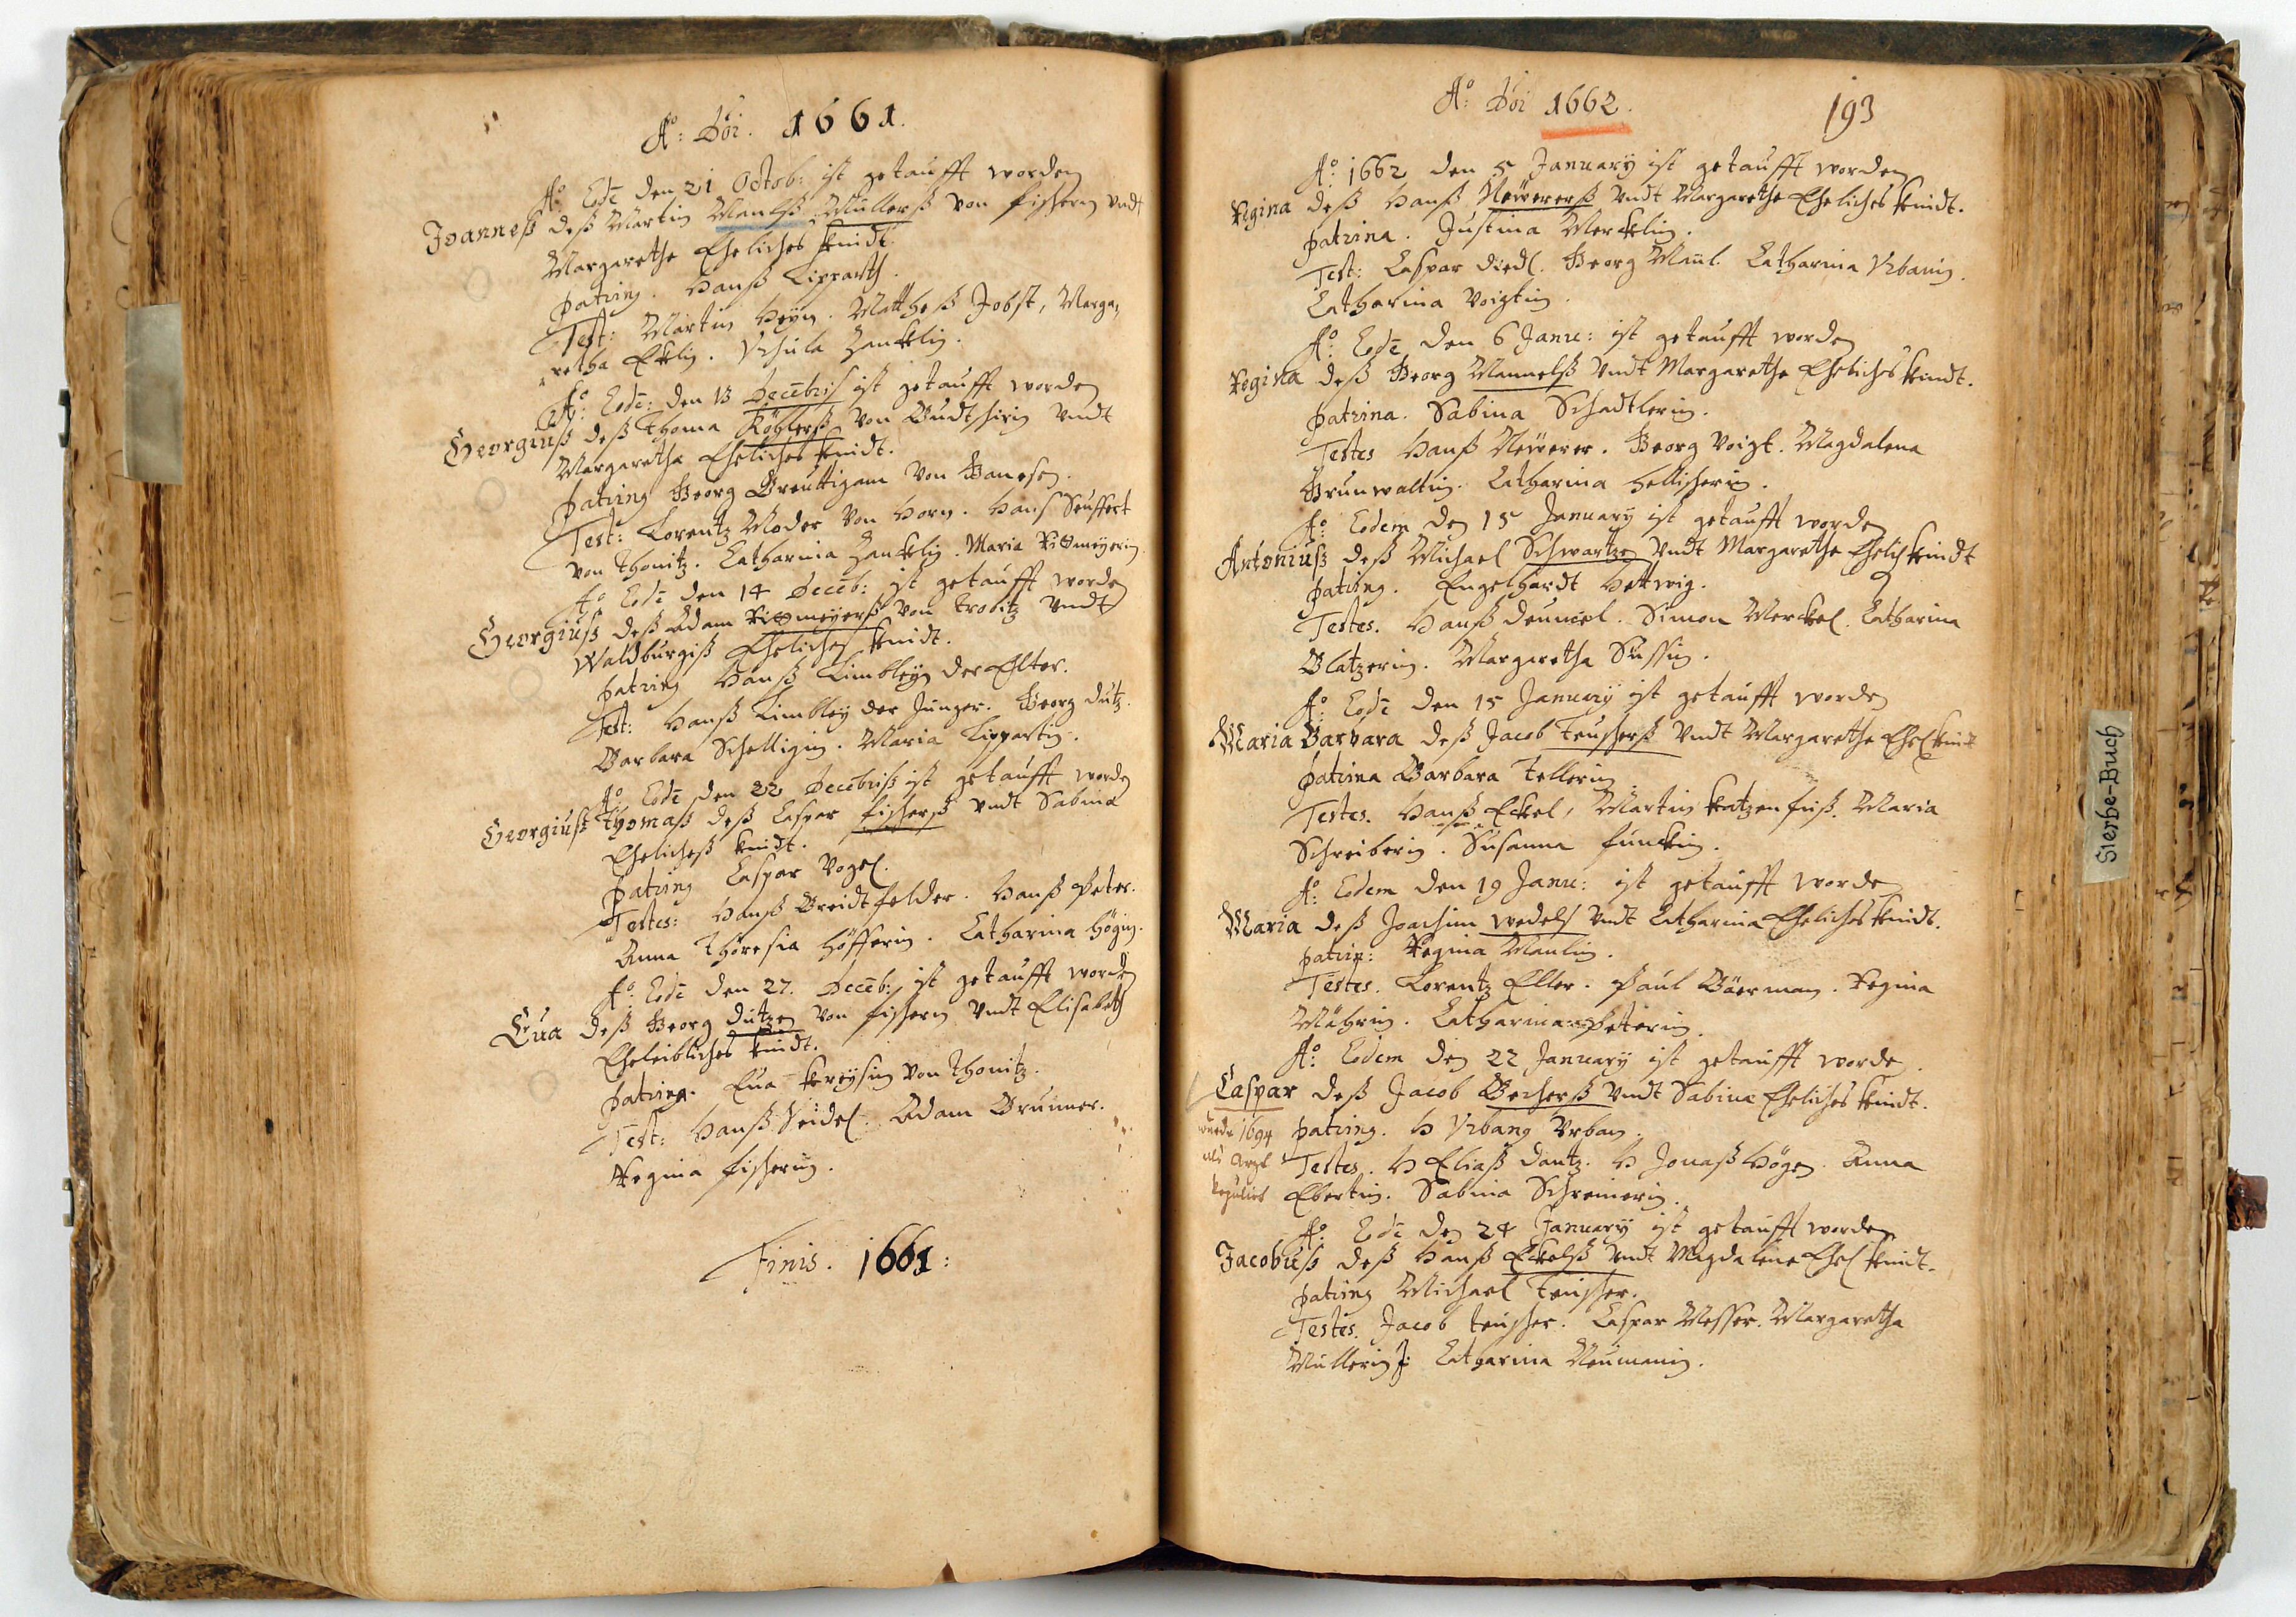 Aº: Dõi. 1661.
Aº Eodē den 21 Octob: ist getaufft worden
Joanneß deß Martin Maulß Müllerß von fischern vndt
Margaretha Eheliches kindt.
patring. Hanß Lippardt.
Test: Martin Heÿn. Mattheß Jobst, Marga,
retha Eklin. Vrsula Zanklin.
Aº: Eodē: den 13 Decēbris ist getaufft worden
Georgiuß deß Thoma Köhlerß von vndt
Margaretha Eheliches kindt.
patring Georg Breuttigam von
Test: Lorentz Moder von Horn. Hanß Seuffert
von Thonitz. Catharina Zanklin. Maria
Aº Eodē den 14 Decēb: ist getaufft worden
Georgiuß deß Adam von Trobitz vndt
Waldburgiß Eheliches kindt.
patring Hanß Limbleÿ der Elter.
Test: Hanß Limbleÿ der Junger. Georg Dutz.
Barbara Schelligin. Maria Lippartin.
Aº: Eodē den 22 Decēbriß ist getaufft worden
Georgiuß Thomaß deß Caspar fischerß vndt Sabina
Eheliches kindt.
patring Caspar Vogel.
Testes: Hanß Breidtfelder. Hanß Peter.
Anna Theresia Höfferin. Catharina Högin.
Aº Eodē den 27. Decēb: ist getaufft worden
Eua deß Georg Dutzen von fischern vndt Elisabeth
Eheleibliches kindt.
patrina. Eua Kreÿsin von Thonitz.
Test: Hanß Seidel. Adam Brunner.
Regina fischerin.
Finis. 1661:
Aº: Dõi 1662.
193
Aº: 1662 den 5 Januarÿ ist getaufft worden
Regina deß Hanß Neẅrerß vndt Margaretha Eheliches kindt.
patrina. Justina Merklin.
Test: Caspar Diedl. Georg Maul. Catharina Vrbanin.
Catharina Voigtin.
Aº: Eodē den 6 Janu: ist getaufft worden
Regina deß Georg Mannelß vndt Margaretha Eheliches kindt.
patrina. Sabina Schadtlerin.
Testes Hanß Neẅrer. Georg Voigt. Magdalena
Grunwaltin. Catharina
Aº: Eodem den 15 Januarÿ ist getaufft worden
Antoniuß deß Michael Schwartzen vndt Margaretha Ehelich kindt
patring. Engelhardt Hettwig.
Testes. Hanß Simon Merckel. Catharina
Blatzerin. Margaretha Süssin.
Aº: Eodē den 15 Januarÿ ist getaufft worden
Maria Barbara deß Jacob Teuscherß vndt Margaretha Ehel kindt
patrina Barbara Tellerin
Testes. Hanß Eckel, Martin Katzenfuß. Maria
Schreiberin. Susanna funckin.
Aº: Eodem den 19 Janu: ist getaufft worden
Maria deß Joachim Wedels vndt Catharina Eheliches kindt.
patrin: Regina Maulin.
Testes. Lorentz Eller. Paul Bäerman. Regina
Mährin. Catharina Peterin.
Aº: Eodem den 22 Januarÿ ist getaufft worden.
Caspar deß Jacob Becherß vndt Sabina Eheliches kindt.
wurde 1694
patring. H Vrbang Vrban.
Testes. H Eliaß Dantz. H Jonaß Högen. Anna
Ebertin. Sabina Schreinerin.
Aº: Eodē den 24 Januarÿ ist getaufft worden
Jacobuß deß Hanß Eckelß vndt Magdalena Ehel kindt.
patring Michael Teuscher.
Testes. Jacob Teuscher. Caspar Messer. Margaretha
Müllerin Catharina Neumanin.
Sterbe-Buch